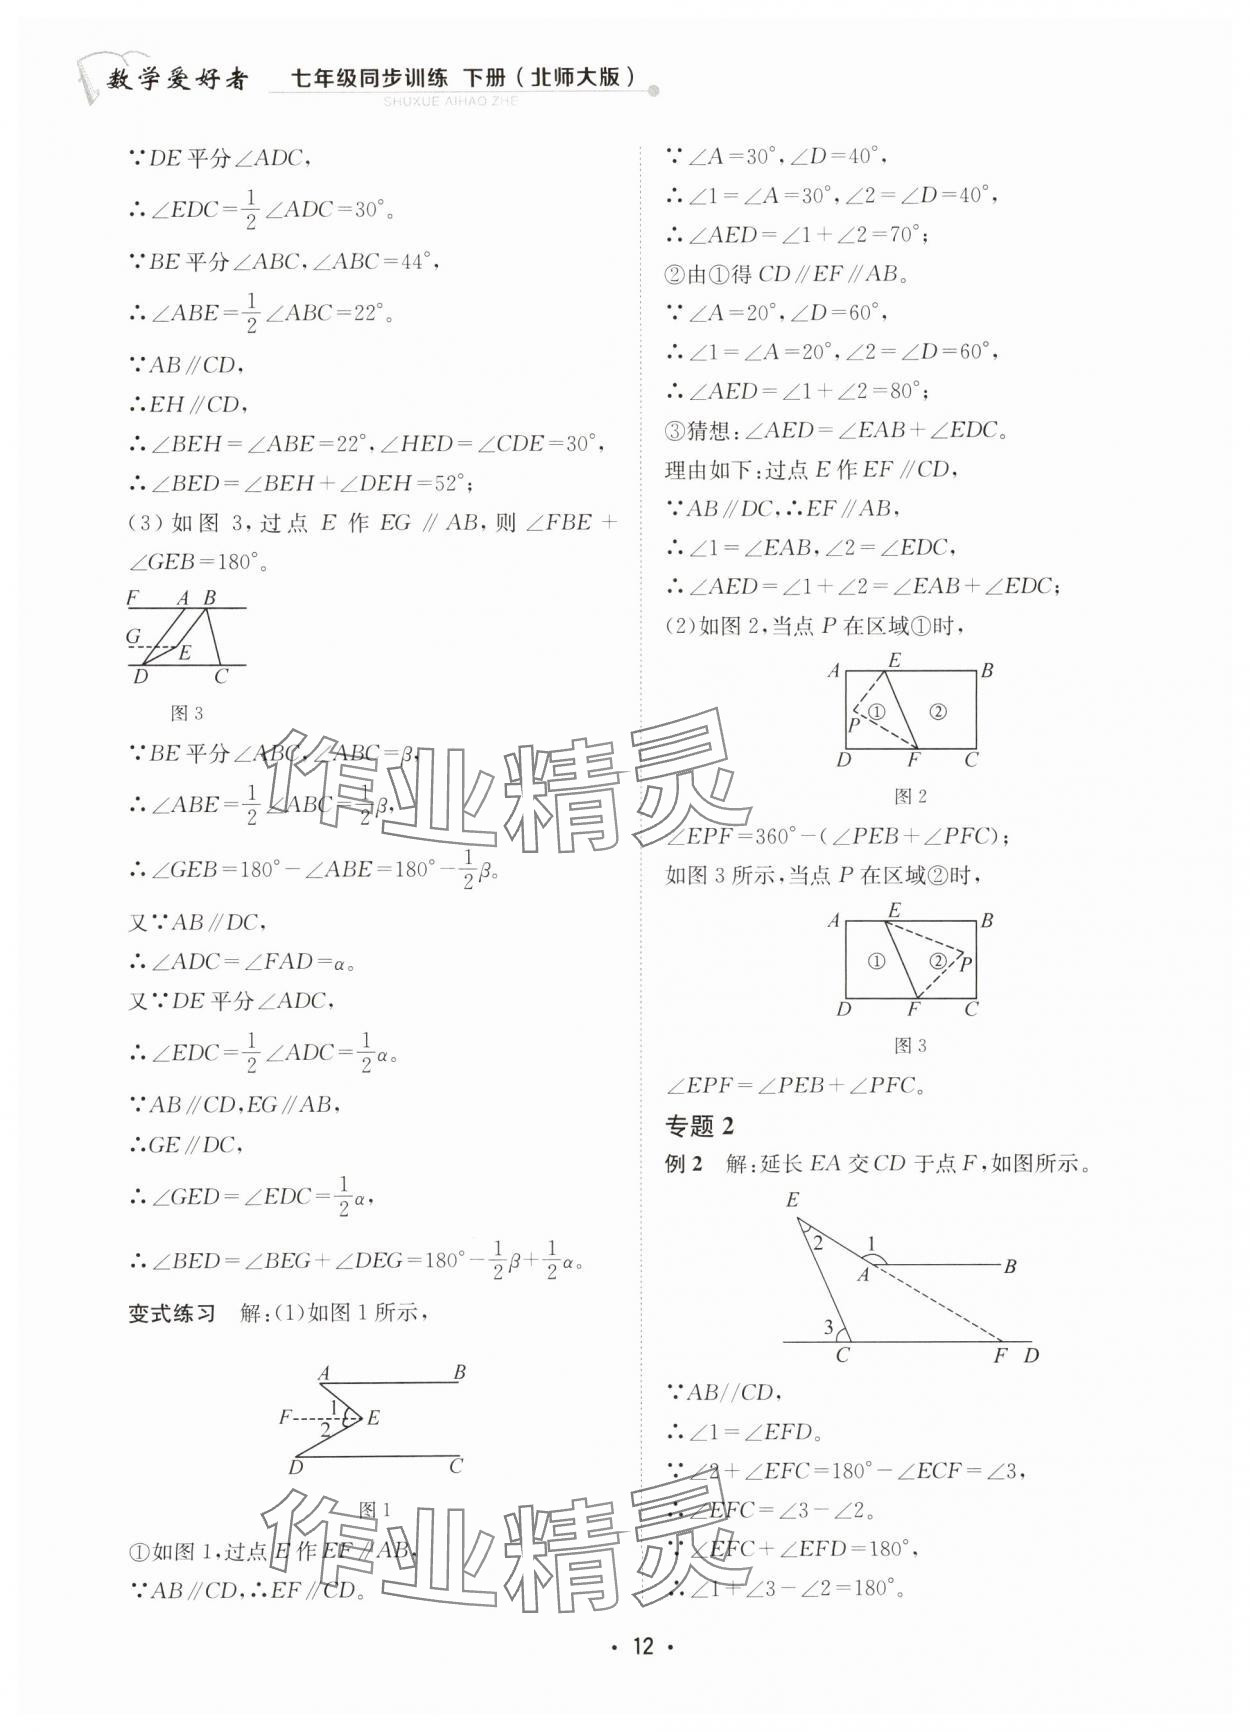 数学爱好者 七年级同步训练 下册(北师大版)
SHUXUE AIHAO ZHE
∵DE平分∠ADC,
∴∠EDC=1/2∠ADC=30°。
∵BE平分∠ABC,∠ABC=44°,
∴∠ABE=1/2∠ABC=22°。
∵AB∥CD,
∴EH∥CD,
∴∠BEH=∠ABE=22°,∠HED=∠CDE=30°,
∴∠BED=∠BEH+∠DEH=52°;
(3)如图3,过点E作EG∥AB,则∠FBE+
∠GEB=180°。
F A B
G
E
D C
图3
∵BE平分∠ABC,∠ABC=β,
∴∠ABE=1/2∠ABC=1/2β,
∴∠GEB=180°-∠ABE=180°-1/2β。
又∵AB∥DC,
∴∠ADC=∠FAD=α。
又∵DE平分∠ADC,
∴∠EDC=1/2∠ADC=1/2α。
∵AB∥CD,EG∥AB,
∴GE∥DC,
∴∠GED=∠EDC=1/2α,
∴∠BED=∠BEG+∠DEG=180°-1/2β+1/2α。
变式练习 解:(1)如图1所示,
A B
F 1 2 E
D C
图1
①如图1,过点E作EF∥AB,
∵AB∥CD,∴EF∥CD。
∵∠A=30°,∠D=40°,
∴∠1=∠A=30°,∠2=∠D=40°,
∴∠AED=∠1+∠2=70°;
②由①得CD∥EF∥AB。
∵∠A=20°,∠D=60°,
∴∠1=∠A=20°,∠2=∠D=60°,
∴∠AED=∠1+∠2=80°;
③猜想:∠AED=∠EAB+∠EDC。
理由如下:过点E作EF∥CD,
∵AB∥DC,∴EF∥AB,
∴∠1=∠EAB,∠2=∠EDC,
∴∠AED=∠1+∠2=∠EAB+∠EDC;
(2)如图2,当点P在区域①时,
A E B
P ① ②
D F C
图2
∠EPF=360°-(∠PEB+∠PFC);
如图3所示,当点P在区域②时,
A E B
① ② P
D F C
图3
∠EPF=∠PEB+∠PFC。
专题2
例2 解:延长EA交CD于点F,如图所示。
E
2 1
A B
3
C F D
∵AB//CD,
∴∠1=∠EFD。
∵∠2+∠EFC=180°-∠ECF=∠3,
∴∠EFC=∠3-∠2。
∵∠EFC+∠EFD=180°,
∴∠1+∠3-∠2=180°。
作业精灵
作业精灵
· 12 ·